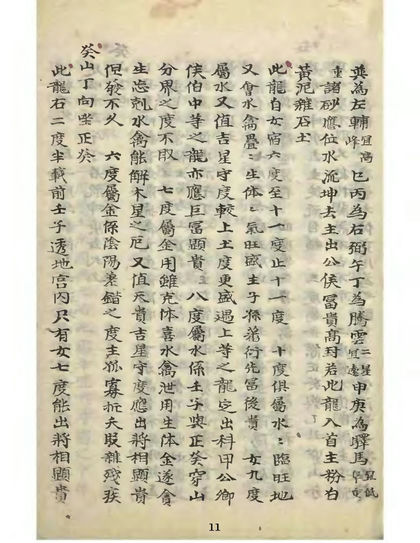 巽為左輔宜高峰巳丙為右弼午丁為騰雲二星宜遠申庚為驛馬宜低
重諸砂應位水流坤去主出公侯冨貴髙封若此龍入首主粉白
黄泥雜石土
此龍自女宿六度至十一度止十一度 十度俱屬水水臨旺地
又會水禽疊疊生体体氣旺盛主子孫蕃衍先冨後貴 女九度
屬水又值吉星守度較上土度更盛遇上等之龍定出科甲公卿
侯伯中等之龍亦應巨冨顯貴 八度屬水係壬子與正癸穿山
分界之度不取 七度屬金用雖克体喜水禽泄用生体金逐貪
生忘剋水禽能解木星之厄又值天貴吉星守度應出將相顯貴
但發不久 六度屬金係陰陽差錯之度主孤寡折夭股雜殘疾
癸山丁向坐正癸
此龍石二度半載前壬子透地宫内只有女七度能出將相顯貴
11